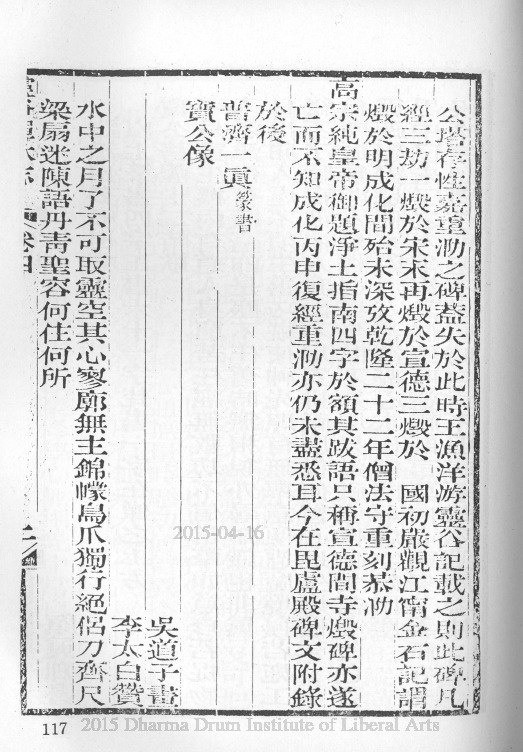 公塔存性嘉重泐之碑蓋失於此時王漁洋游靈谷記載之則此碑凡
經三劫一燬於宋末再燬於宣德三燬於 國初嚴觀江甯金石記謂
燬於明成化間殆未深攷乾隆二十二年僧法守重刻恭泐
高宗純皇帝御題淨土指南四字於額其跋語只稱宣德間寺燬碑亦遂
亡而不知成化丙申復經重泐亦仍未盡悉耳今在毘盧殿碑文附錄
於後
普濟一眞篆書
寶公像
吳道子畫
李太白贊
水中之月了不可取靈空其心寥廓無主錦幪鳥爪獨行絕侶刀齊尺
梁扇迷陳語丹靑聖容何住何所
卷四
117
2015-04-16
2015 Dharma Drum Institute of Liberal Arts